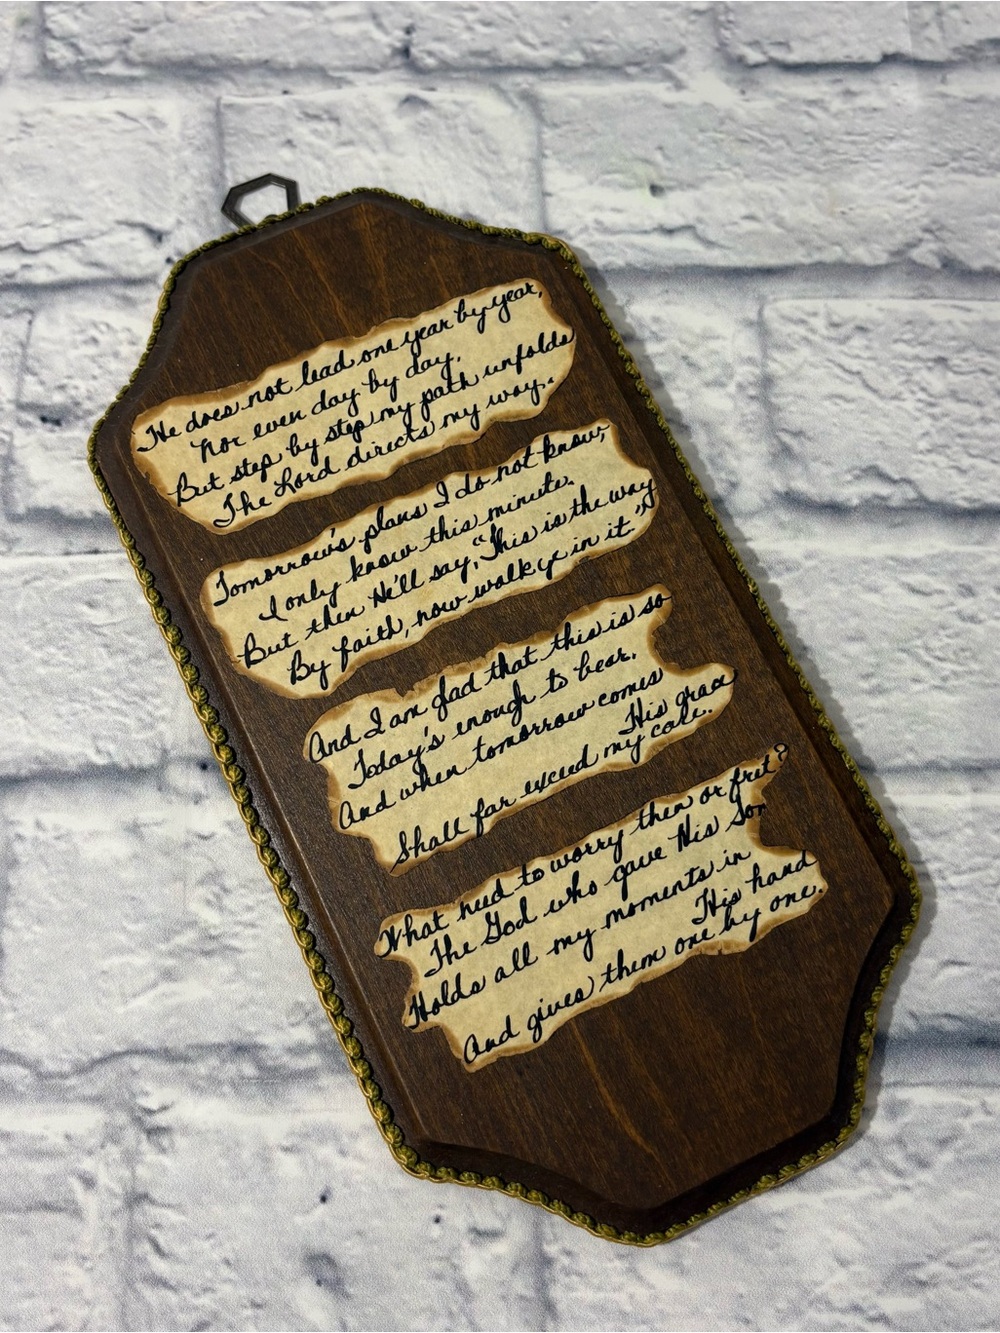 He does not lead one year by year,
Nor even day by day.
But step by step my path unfolds
The Lord directs my way.
Tomorrow's plans I do not know,
I only know this minute.
But then He'll say, "This is the way
By faith, now walk ye in it."
And I am glad that this is so
Today's enough to bear.
And when tomorrow comes
His grace
Shall far exceed my care.
What need to worry then or fret?
The God who gave His Son
Holds all my moments in
His hand
And gives them one by one.